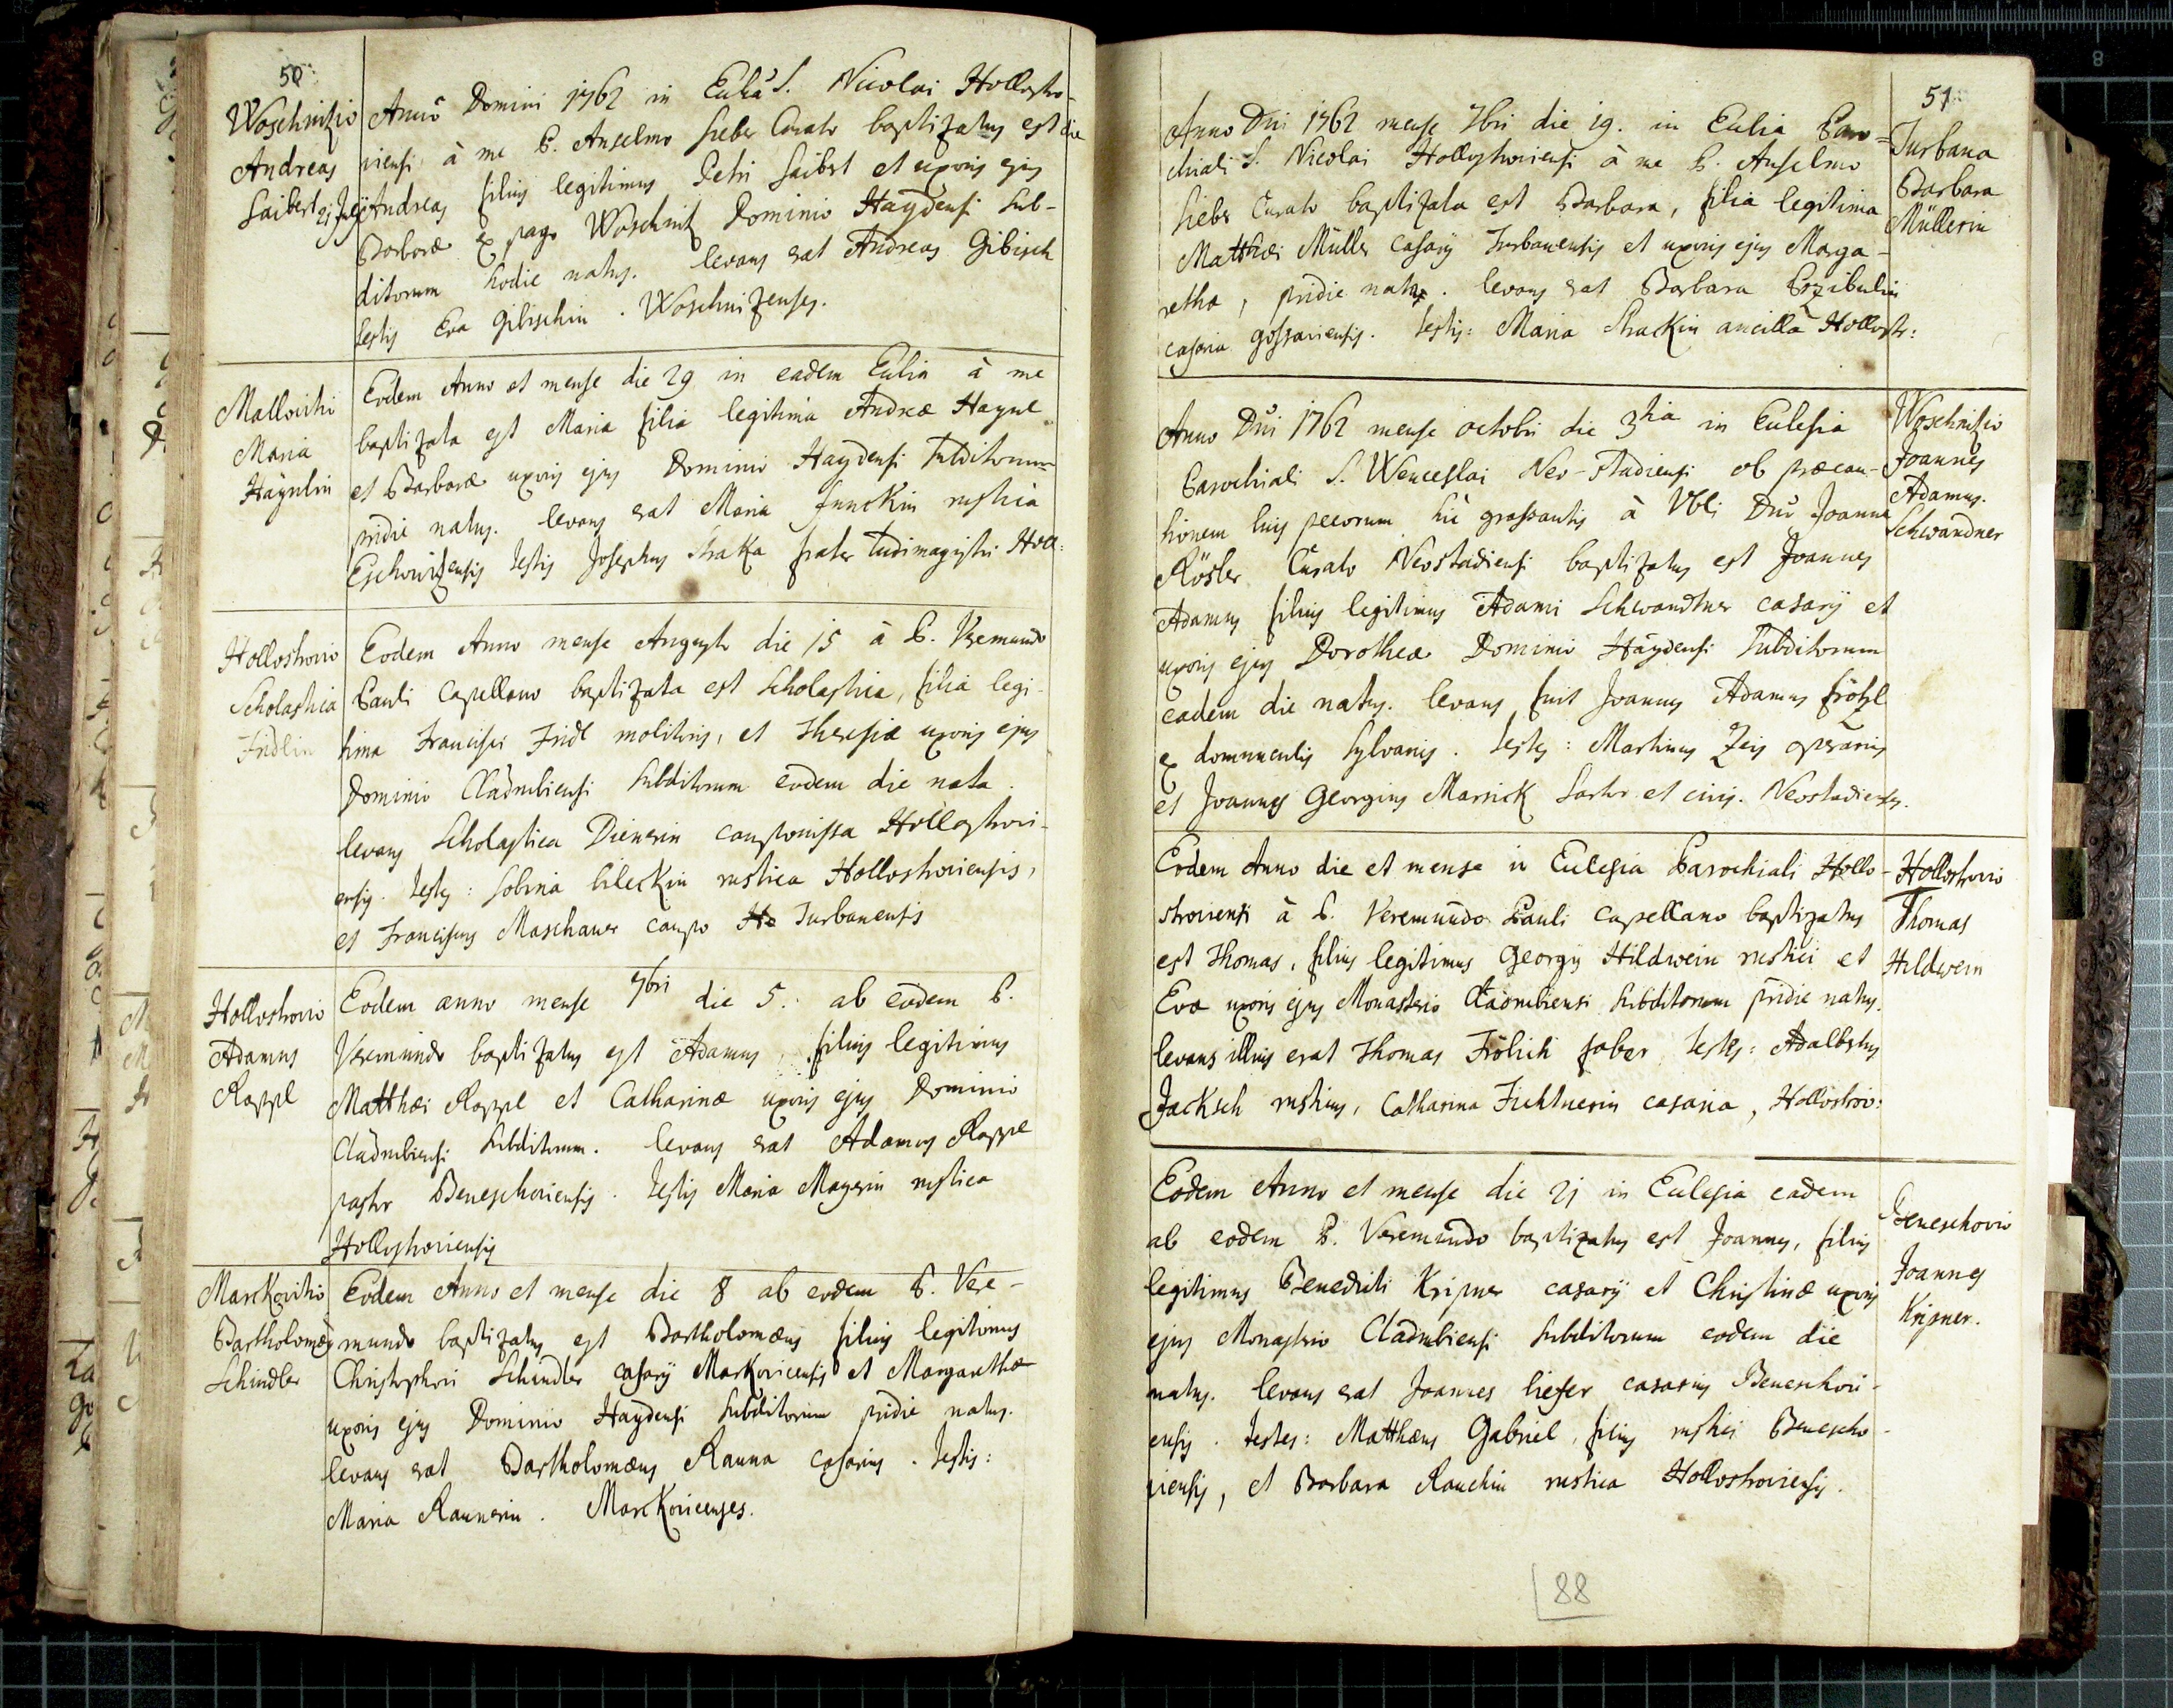 50
Woschnizio
Andreas
Saibert
Anno Domini 1762 in Eccliâ S. Nicolai Hollostro-
viensi à me P. Anselmo Sieber Curato baptizatus est die
21 Julij Andreas filius legitimus Petri Saibert et uxoris ejus
Barbaræ ex pago Woschnitz Dominio Haydensi Sub-
ditorum hodie natus. levans erat Andreas Gibisch
testis Eva Gibischin. Woschnizenses.
Mallovitii
Maria
Haÿnlin
Eodem Anno et mense die 29 in eadem Ecclia à me
baptizata est Maria filia legitima Andreæ Haynl
et Barbaræ uxoris ejus Dominio Haydensi Subditorum
pridie natus. levans erat Maria Funckin rustica
Eschowitzensis testis Josephus Straka frater Ludimagistri Holl:
Hollostrovio
Scholastica
Fridlin
Eodem Anno mense Augusto die 15 à P. Veremundo
Pauli Capellano baptizata est Scholastica, filia legi-
tima Francisci Fridl molitoris, et Theresiæ uxoris ejus
Dominio Cladrubiensi Subditorum eodem die nata.
levans Scholastica Dienerin cauponissa Hollostrovi-
ensis. testes: Sabina bileckin rustica Hollostroviensis,
et Franciscus Maschauer caupo Ho Turbanensis
Hollostrovio
Adamus
Rappl
Eodem anno mense 7bri die 5. ab eodem P.
Veremundo baptizatus est Adamus, filius legitimus
Matthæi Rappl et Catharinæ uxoris ejus Dominio
Cladrubiensi Subditorum. levans erat Adamus Rappl
pastor Beneschoviensis. testis Maria Mayerin rustica
Hollostroviensis
Marckovitio
Bartholomæus
Schindler
Eodem Anno et mense die 8 ab eodem P. Vere-
mundo baptizatus est Bartholomæus filius legitimus
Christophori Schindler casarij Markovicensis et Margarethæ
uxoris ejus Dominio Haydensi Subditorum pridie natus.
levans erat Bartholomæus Rauna casarius. testis:
Maria Raunerin. Marckovicenses.
51
Anno Dni 1762 mense 7bri die 19. in Ecclia Paro-
chiali S. Nicolai Hollostroviensi à me P. Anselmo
Sieber Curato baptizata est Barbara, filia legitima
Matthæi Müller casarij Turbanensis et uxoris ejus Marga-
retha, pridie natus. levans erat Barbara Przibulin
casaria gossaviensis. testis: Maria Strackin ancilla Hollostr:
Turbana
Barbara
Müllerin
Anno Dni 1762 mense octobri die 3tia in Ecclesia
Parochiali S. Wenceslai Neo-stadiensi ob præcau-
tionem luis pecorum hic grassantis à Vbli Dno Joanne
Rösler Curato Neostadiensi baptizatus est Joannes
Adamus filius legitimus Adami Schwandtner casarij et
uxoris ejus Dorotheæ Dominio Haÿdensi Subditorum
eadem die natus. levans fuit Joannes Adamus Fröhl
ex domunculis Sylvanis. testes: Martinus Zeis operarius
et Joannes Georgius Marsick Sartor et civis. Neostadienses.
Woschnizio
Joannes
Adamus.
Schwandner
Eodem Anno die et mense in Ecclesia Parochiali Hollo-
stroviensi à P. Veremundo Pauli Capellano baptizatus
est Thomas, filius legitimus Georgij Hildwein rustici et
Eva uxoris ejus Monasterio Cladrubiensi Subditorum pridie natus.
levans illius erat Thomas Frölich faber testes: Adalbertus
Jacksch rusticus, Catharina Fichtnerin casaria, Hollostrov:
Hollostrovio
Thomas
Hildwein
Eodem Anno et mense die 21 in Ecclesia eadem
ab eodem P. Veremundo baptizatus est Joannes, filius
legitimus Benedicti Kripner casarij et Christinæ uxoris
ejus Monasterio Cladrubiensi Subditorum eodem die
natus. levans erat Joannes liefer casarius Beneschovi-
ensis. testes: Matthæus Gabriel, filius rustici Benescho-
viensis, et Barbara Rauchin rustica Hollostroviensis.
Beneschovio
Joannes
Kripner.
88